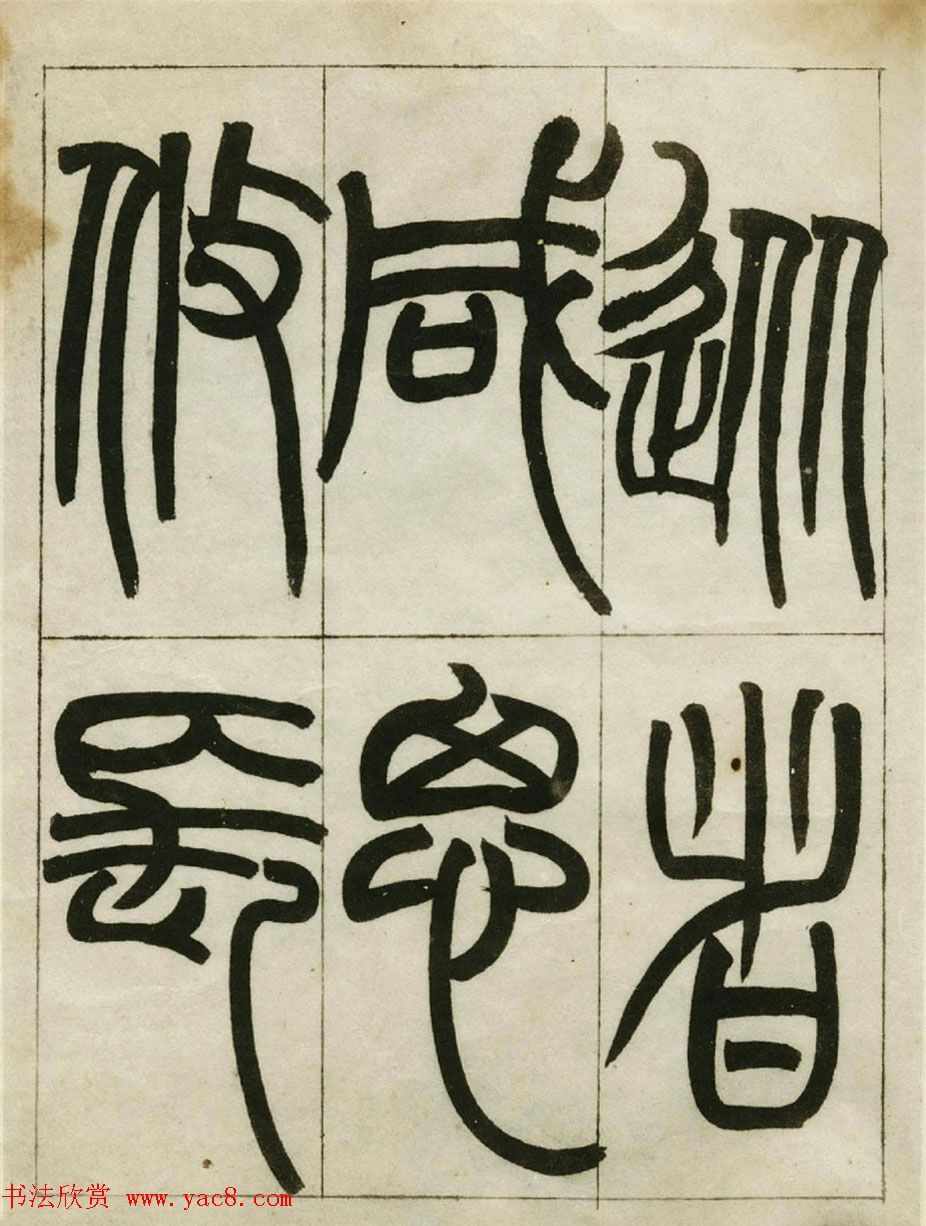 從者
咸思
攸長
书法欣赏 www.yac8.com